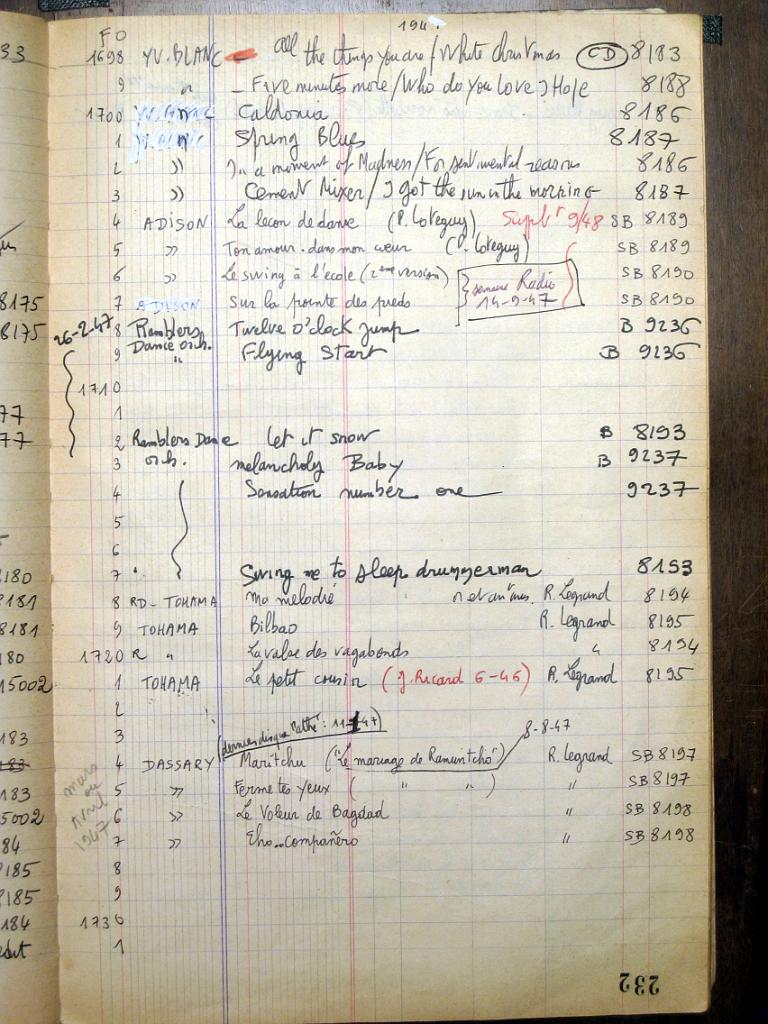 194
FD
1698 YV. BLANC - All the things you are / White christmas CD 8183
9 " - Five minutes more / Who do you love I Hope 8188
1700 YV. BLANC Caldonia 8186
1 YV. BLANC Spring Blues 8187
2 " In a moment of Madness / For sentimental reasons 8186
3 " Cement Mixer / I got the sun in the morning 8187
4 ADISON La leçon de danse (P. Loteguy) Suplt 9/48 SB 8189
5 " Ton amour dans mon cœur (P. Loteguy) SB 8189
6 " Le swing à l'école (2ème version) SB 8190
semaine Radio
14-9-47
7 ADISON Sur la pointe des pieds SB 8190
26-2-47
8 Ramblers Twelve o'clock jump B 9236
9 Dance orch. " Flying Start B 9236
1710
1
2 Ramblers Dance Let it snow B 8193
3 orch. melancholy Baby B 9237
4 Sensation number one 9237
5
6
7 Swing me to sleep drummerman 8193
8 RD- TOHAMA Ma mélodie R. Legrand 8194
9 TOHAMA Bilbao R. Legrand 8195
1720 R " La valse des vagabonds " 8194
1 TOHAMA Le petit cousin (J. Ricard 6-46) R. Legrand 8195
2
3 (dernier disque Pathé : 11-47) 8-8-47
4 DASSARY Maritchu ("Le mariage de Ramuntcho") R. Legrand SB 8197
5 " Ferme tes yeux ( " " ) " SB 8197
6 " Le Voleur de Bagdad " SB 8198
7 " Eho.. compañero " SB 8198
mars ou Avril 1947
8
9
1730
1
232